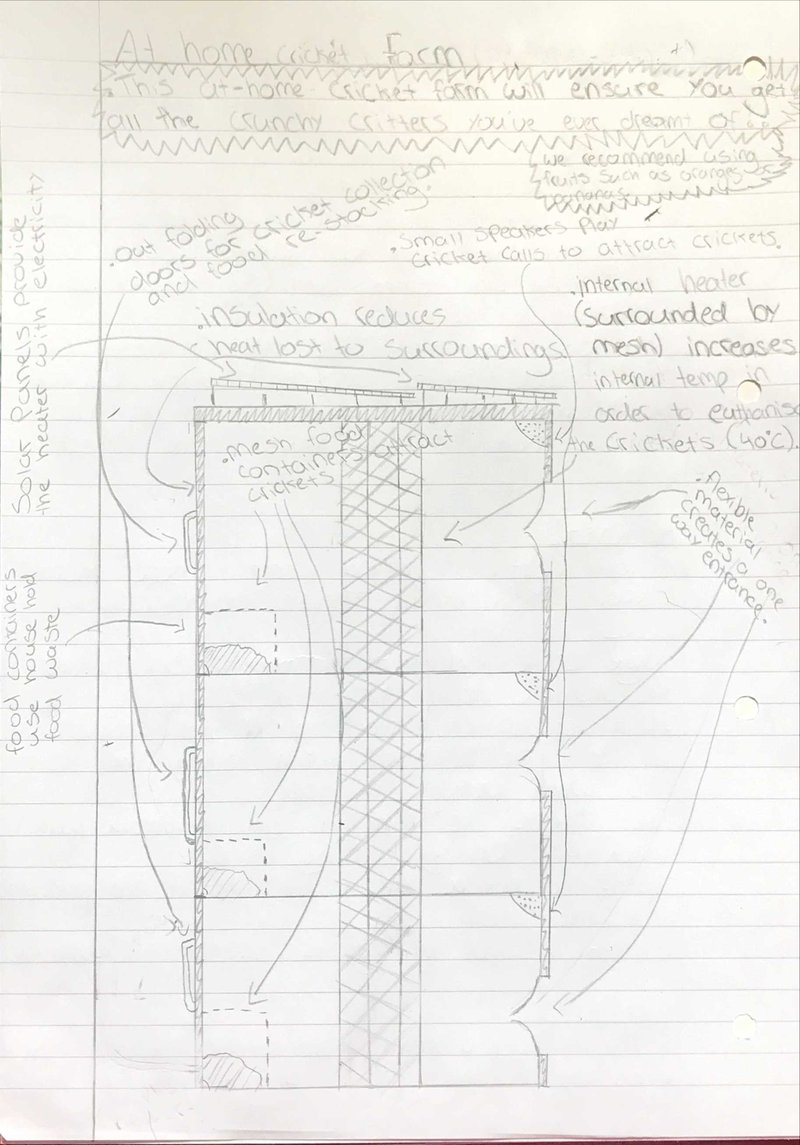 At home cricket Farm
.This at-home cricket farm will ensure you get
all the crunchy critters you've ever dreamt of.
we recommend using
fruits such as oranges
bananas.
.out folding
doors for cricket collection
and food re-stocking.
.Small speakers play
cricket calls to attract crickets.
.internal heater
(surrounded by
mesh) increases
internal temp in
order to euthanise
the crickets (40°C).
.insulation reduces
heat lost to surroundings.
Solar Panels provide
the heater with electricity
.mesh food
containers attract
crickets
.flexible
material
creates a one
way entrance.
food containers
use house hold
food waste